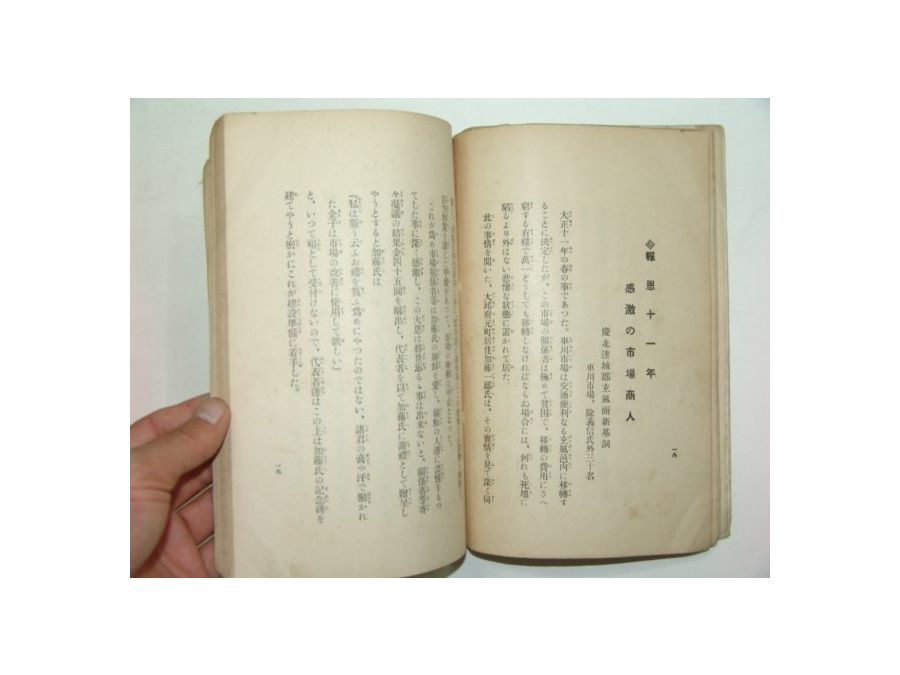 報恩十一年
感激の市場商人
慶北達城郡玄風面新基洞
車川市場、除義信氏外三十名
大正十一年の春の事であつた。車川市場は交通便利なる玄風邑內に移轉す
ることに決定したが、この市場の關係者は極めて貧困で、移轉の費用にさへ
窮する有樣で萬一どうしても移轉しなければならぬ場合には、何れも死地に
陷るより外はない悲慘な狀態に置かれて居た。
此の事情を聞いた、大邱府元町居住加藤一郞氏は、その實情を見て深く同
一八
これが爲め市場關係者等は加藤氏の朝鮮を愛し、朝鮮の人達に溫情をもつ
てした事に深く感激し、この大恩は終世忘るゝ事は出來ないと、關係者等寄
々凝議の結果金四十五圓を醵出し、代表者を以て加藤氏に謝禮として贈呈し
やうとすると加藤氏は
『私は斯う云ふお禮を貰ふ爲めにやつたのではない、諸君の膏や汗で働かれ
た金子は市場の改善に使用して欲しい』
と、いつて頑として受付けないので、代表者達はこの上は加藤氏の記念碑を
建てやうと密かにこれが建設準備に着手した。
一九